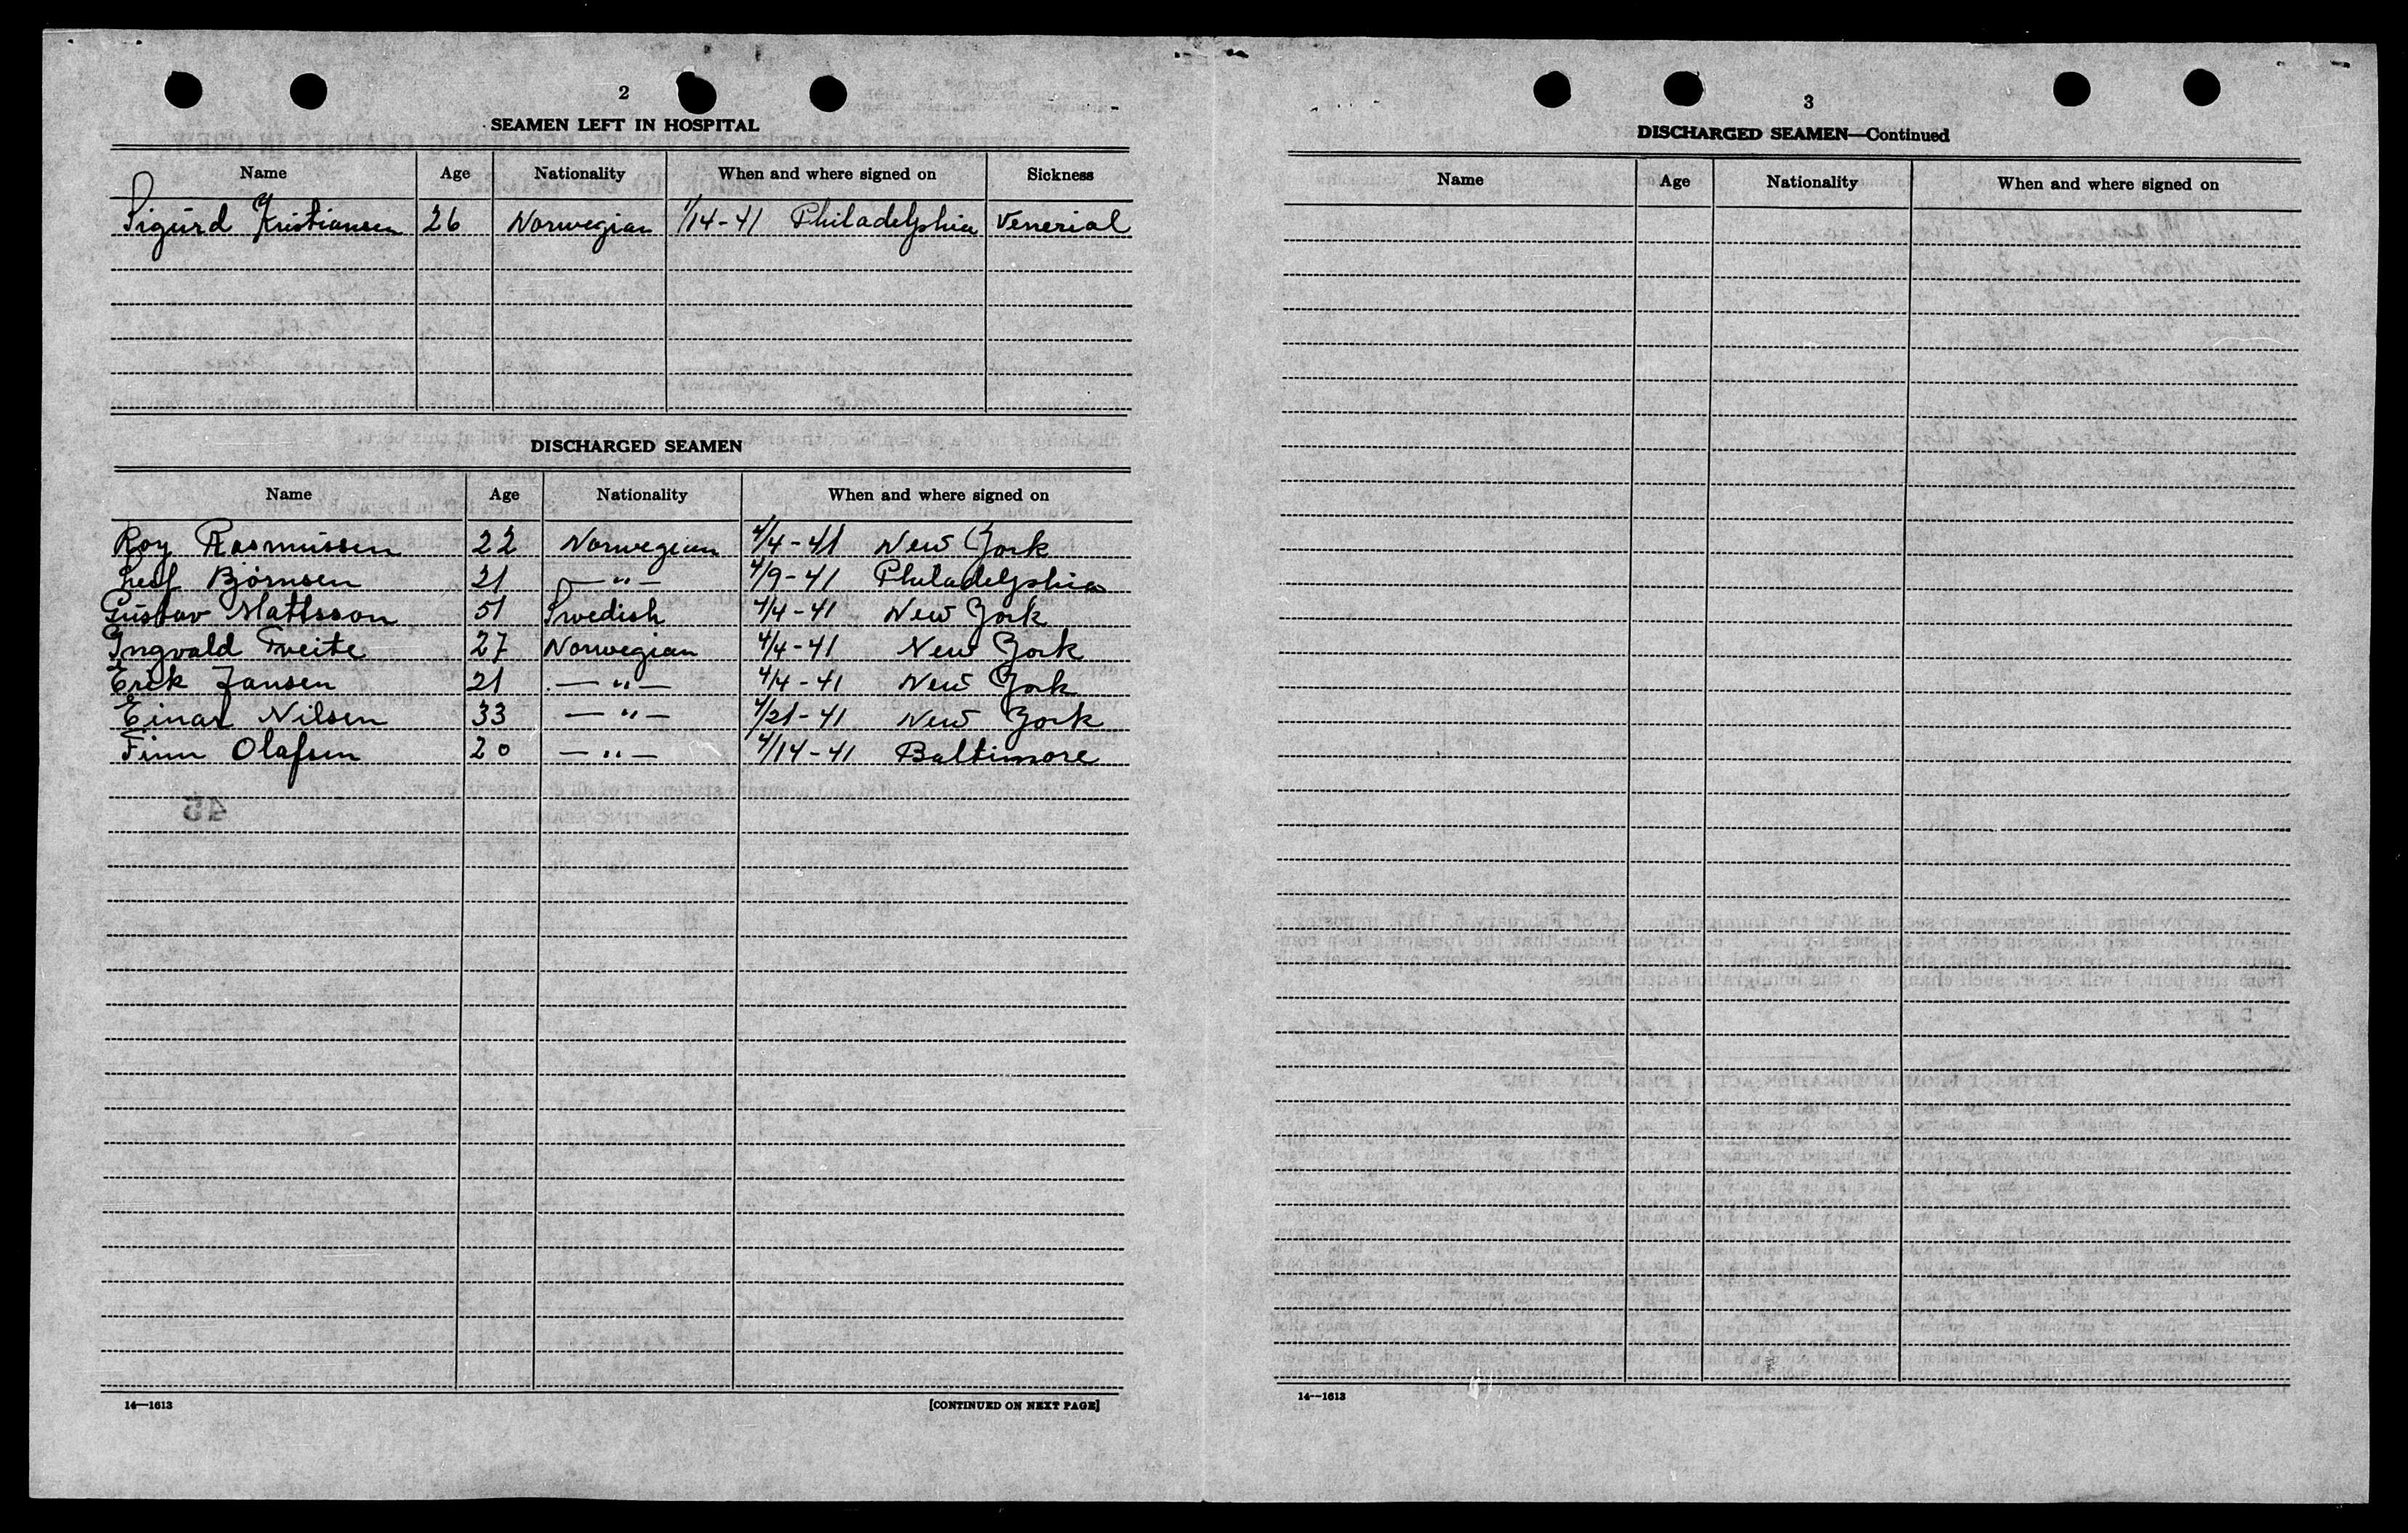 2
SEAMEN LEFT IN HOSPITAL
Name Age Nationality When and where signed on Sickness
Sigurd Kristiansen 26 Norwegian 1/14-41 Philadelphia Venerial
DISCHARGED SEAMEN
Name Age Nationality When and where signed on
Roy Rasmussen 22 Norwegian 4/4-41 New York
Leif Bjørnsen 21 —"— 4/9-41 Philadelphia
Gustav Mattsson 51 Swedish 4/4-41 New York
Ingvald Tveite 27 Norwegian 4/4-41 New York
Erik Jansen 21 —"— 4/4-41 New York
Einar Nilsen 33 —"— 4/21-41 New York
Finn Olafsen 20 —"— 4/14-41 Baltimore
45
14—1613 [CONTINUED ON NEXT PAGE]
3
DISCHARGED SEAMEN—Continued
Name Age Nationality When and where signed on
14—1613